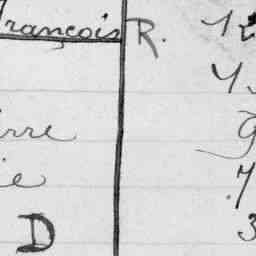 François R. 12
4
erre 9
ie 7
D 3